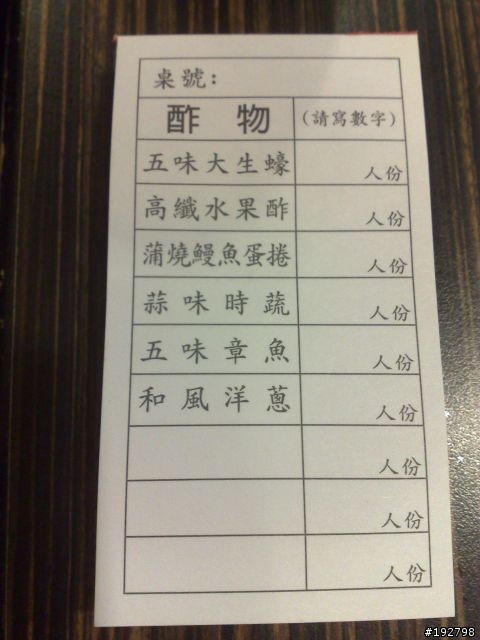 桌號:
酢物 (請寫數字)
五味大生蠔 人份
高纖水果酢 人份
蒲燒鰻魚蛋捲 人份
蒜味時蔬 人份
五味章魚 人份
和風洋蔥 人份
人份
人份
人份
#192798